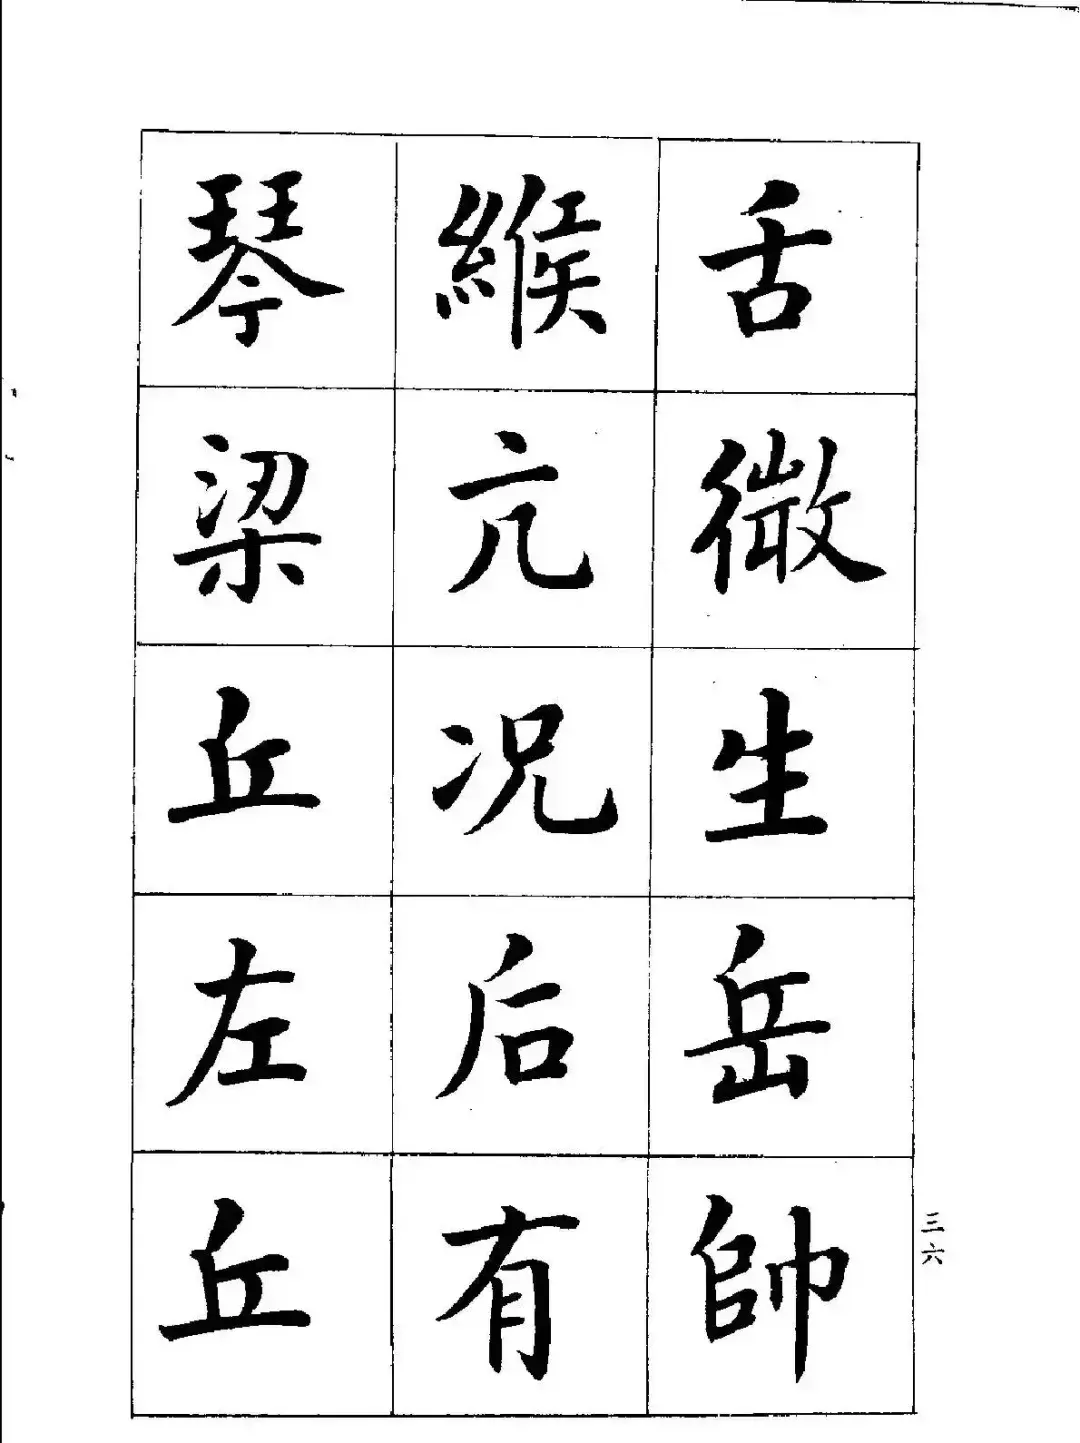 舌微生岳帥
緱亢况后有
琴梁丘左丘
三六